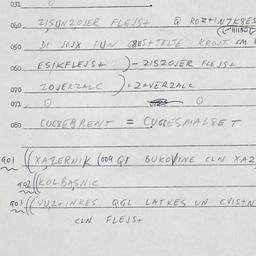 031 0
040 ZISUNZOJER FLEJS+ Q ROZ+INZKBES
050 DI JOJX FUN OBES+TELTE KROJT CM
060 ESIKFLEJS+ )- ZISZOJER FLEJS+
070 ZOJERZALC )= ZAVERZALC
071 0 0
080 CUGEBRENT = CUGESMALSET
901 ((XAZERNIK (009 QI BUKOVINE CLN XAZ
902 ((KOLBASNIK
903 ((VUZ+INKES QGL LATKES UN CVISTN
CLN FLEJS+